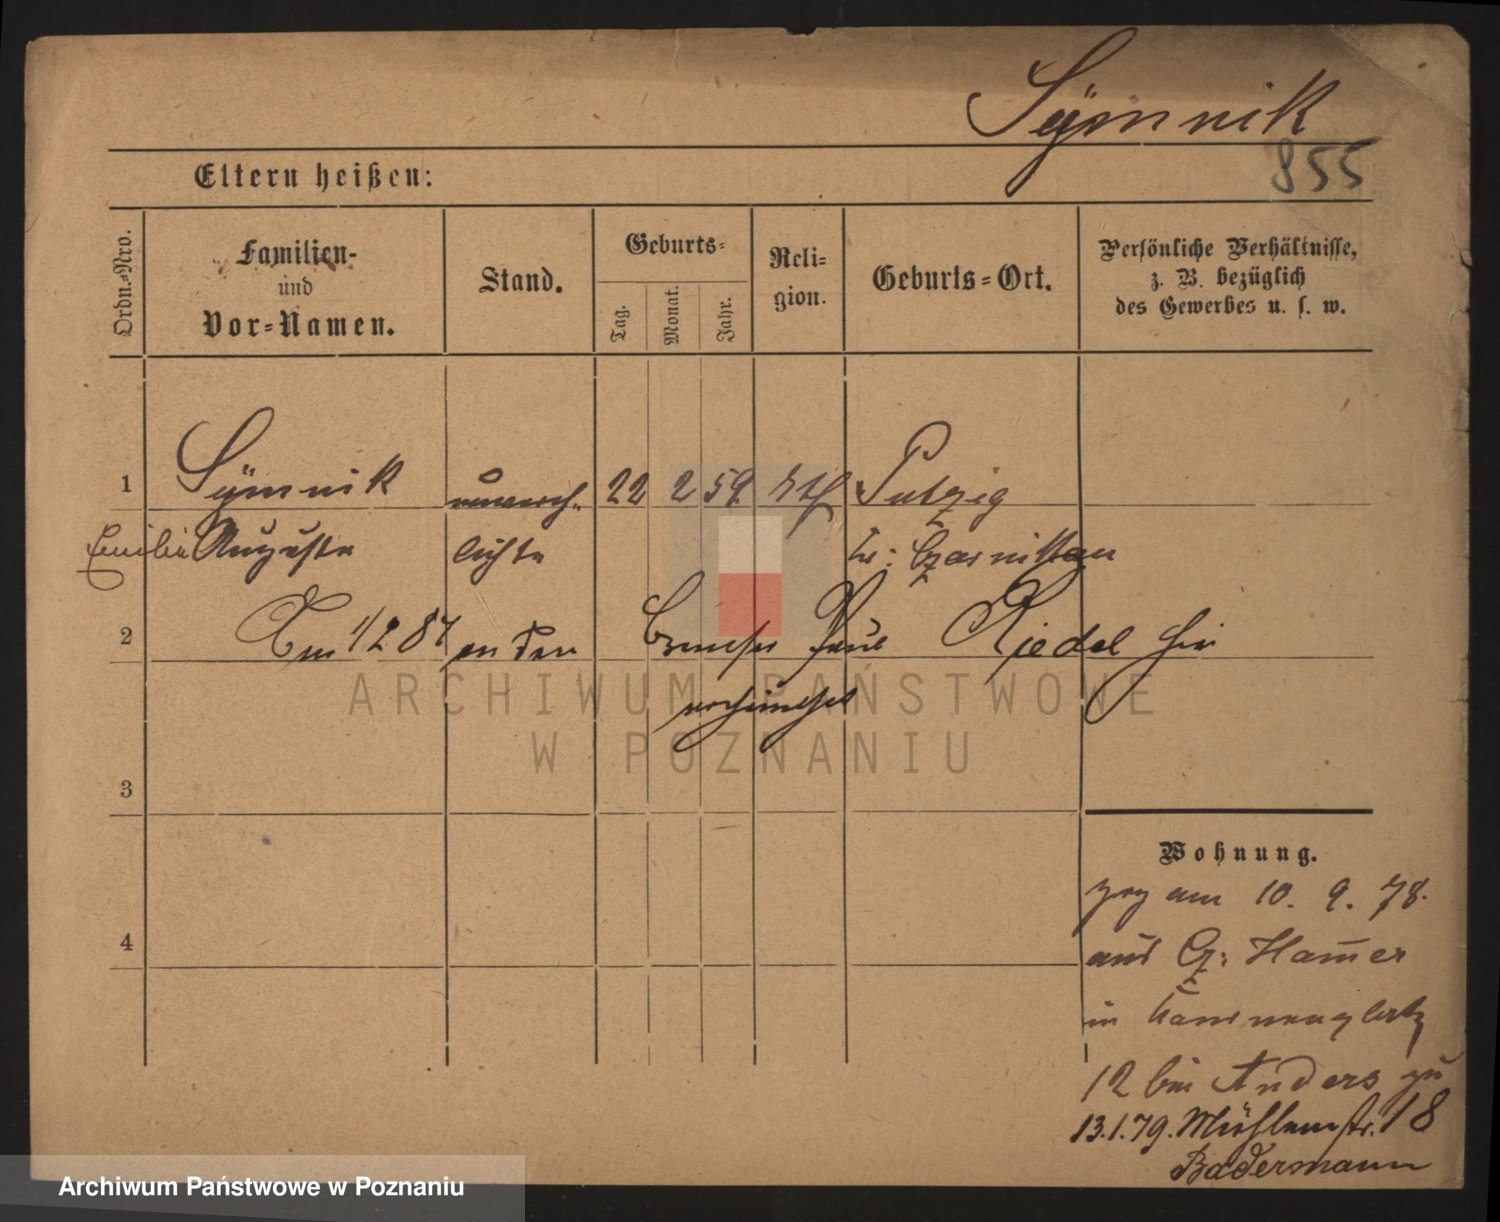 Sÿmnik
855
Eltern heißen:
Ordn.-Nro.
Familien-
und
Vor-Namen.
Stand.
Geburts-
Tag.
Monat.
Jahr.
Reli-
gion.
Geburts-Ort.
Persönliche Verhältnisse,
z. B. bezüglich
des Gewerbes u. s. w.
1 Sÿmnik unvereh- 22 2 59 kth Putzig
Emilie Auguste lichte Kr: Czarnikau
2 Am 1/2 87 an den Paul Riedel hier
verheirathet
ARCHIWUM PAŃSTWOWE
W POZNANIU
3
Wohnung.
zog am 10. 9. 78.
4
aus Cz: Ham̅er
in
12 bei Anders zu
13.1.79. Mühlenstr. 18
Badermann
Archiwum Państwowe w Poznaniu